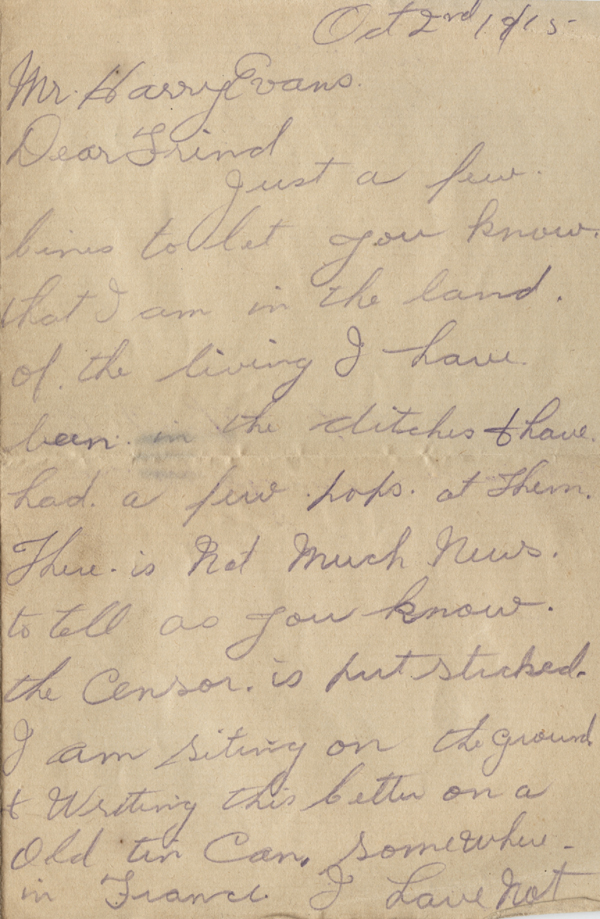 Oct 2nd 1915
Mr. Harry Evans.
Dear Frind
Just a few.
lines to let you know.
that I am in the land.
of. the living I have
been. in the ditches & have.
had. a few pops. at them.
There. is Not Much News.
to tell as you know.
the Censor. is
I am siting on the ground
& Writing this letter on a
Old tin Can. somewhere -
in France. I have Not